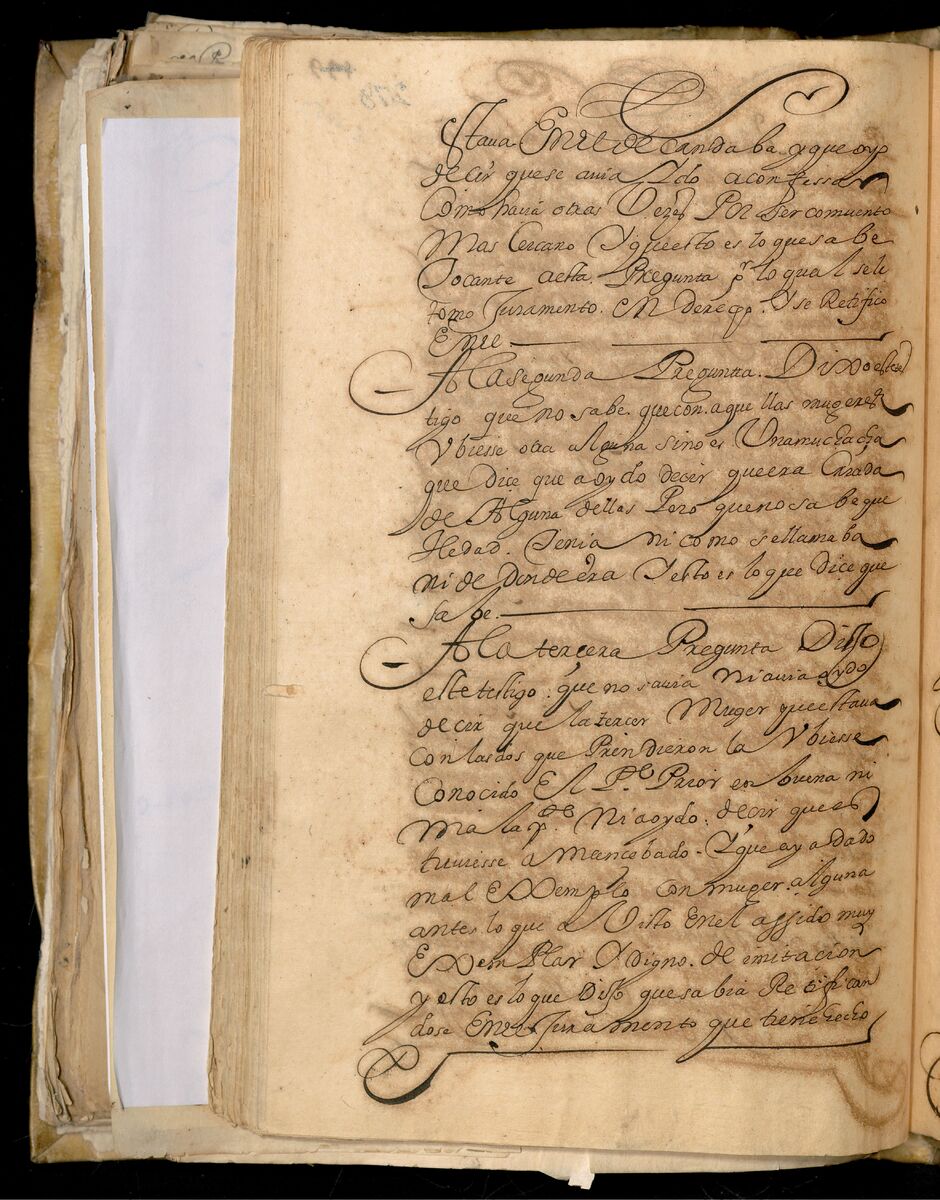 Stava En el de Candaba y que oyo
decir que se avia ido a confessar
Como haviá otras Vezes Por ser comvento
Mas Cercano Y que esto es lo que sabe
Tocante a esta Pregunta pr lo qual se le
tomo Juramento. en derecho. Y se Retifico
En el
A la segunda Pregunta. Dixo este tes
tigo que no sabe. que con. aquellas mugeres
Vbiesse otra alguna sino es Una muchacha
que dice que a oydo decir que era Criada
de Alguna dellas Pero que no sabe que
Hedad. Tenia ni como se llamaba
ni de donde era Y esto es lo que diçe que
sabe.
A la terçera Pregunta Disso
este testigo. que no savia Ni avia oydo
decir que la tercer Muger que estava
con las dos que Prendieron la Vbiesse
Conocido El Pe. Prior en buena ni
mala pte. Ni a oydo. decir que es
tuviesse a Mancebado. Y que aya dado
mal Exemplo con muger alguna
antes lo que a Visto En el assido muy
Exemplar Y Digno. de imitacion
y esto es lo que Disso que sabia Retifican
dose En el Juramento que tiene hecho